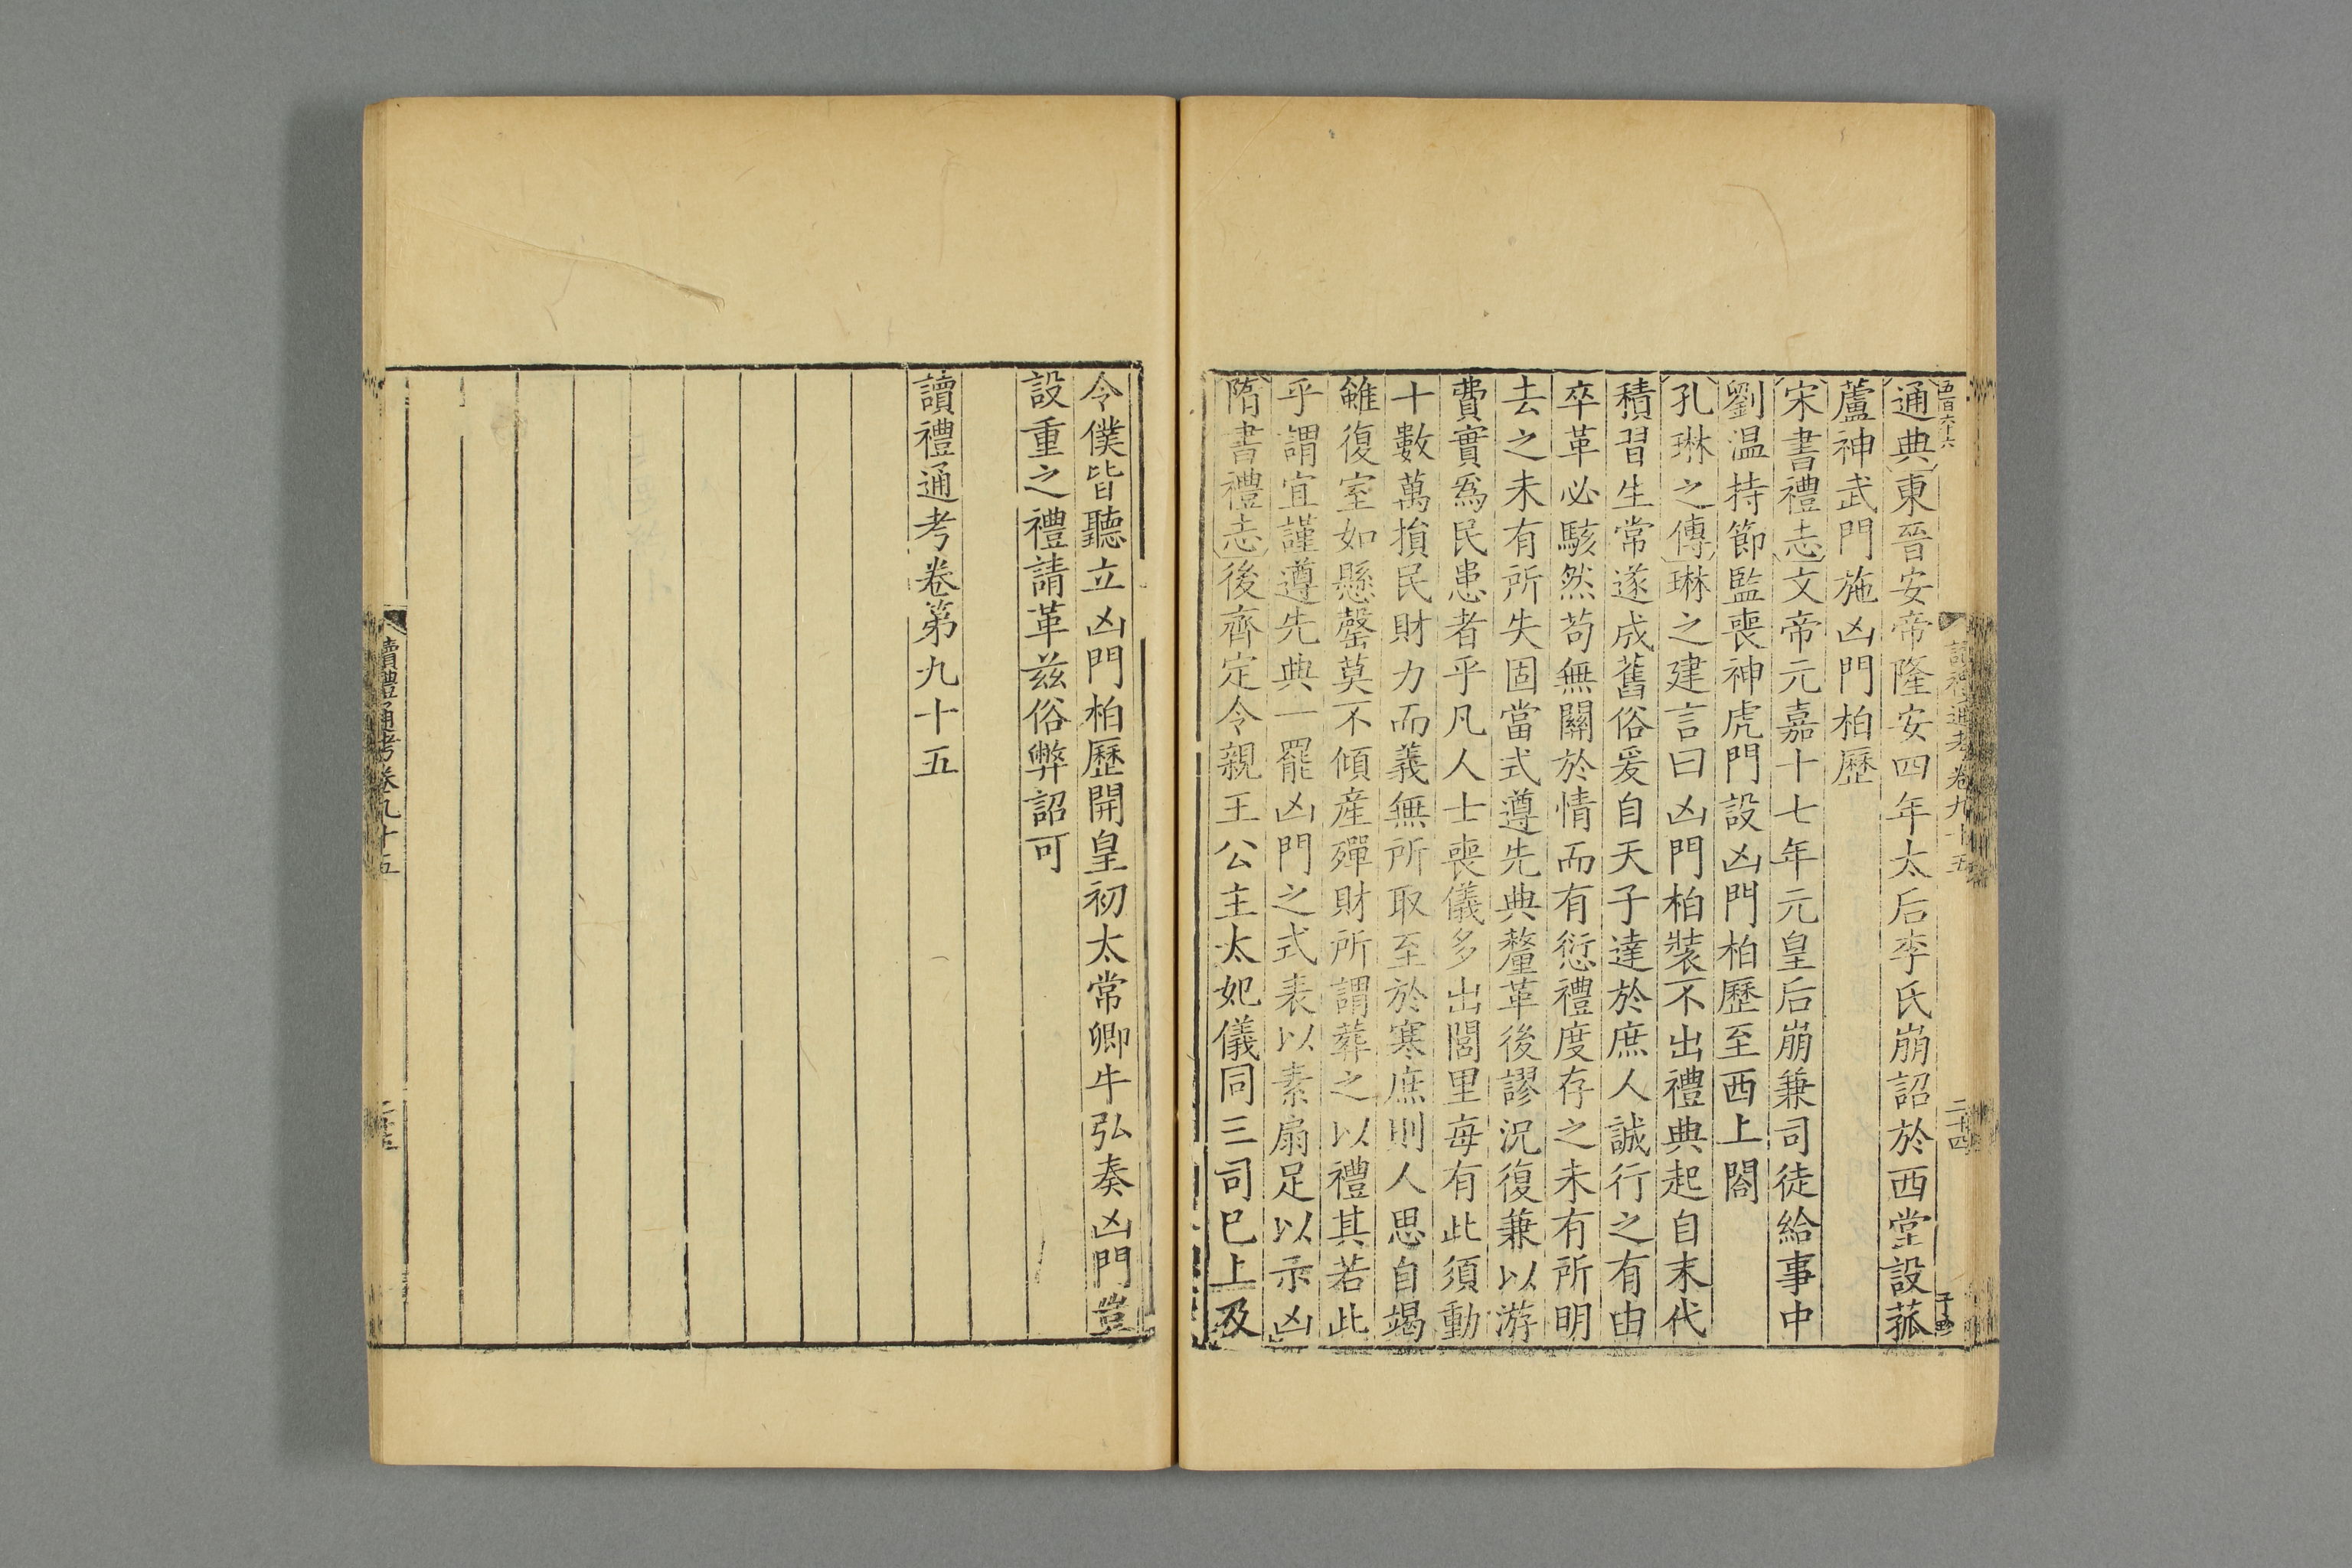 五百六十六
通典東晉安帝隆安四年太后李氏崩詔於西堂設菰
蘆神武門施凶門柏歷
宋書禮志文帝元嘉十七年元皇后崩兼司徒給事中
劉温持節監喪神虎門設凶門柏歷至西上閤
孔琳之傳琳之建言曰凶門柏裝不出禮典起自末代
積習生常遂成舊俗爰自天子達於庶人誠行之有由
卒革必駭然苟無關於情而有愆禮度存之未有所明
去之未有所失固當式遵先典釐革後謬況復兼以游
費實爲民患者乎凡人士喪儀多出閭里每有此須動
十數萬損民財力而義無所取至於寒庶則人思自竭
雖復室如懸罄莫不傾産殫財所謂葬之以禮其若此
乎謂宜謹遵先典一罷凶門之式表以素扇足以示凶
隋書禮志後齊定令親王公主太妃儀同三司已上及
讀禮通考卷九十五
二十四
令僕皆聽立凶門柏歷開皇初太常卿牛弘奏凶門豈
設重之禮請革兹俗弊詔可
讀禮通考卷第九十五
讀禮通考卷九十五
二十五